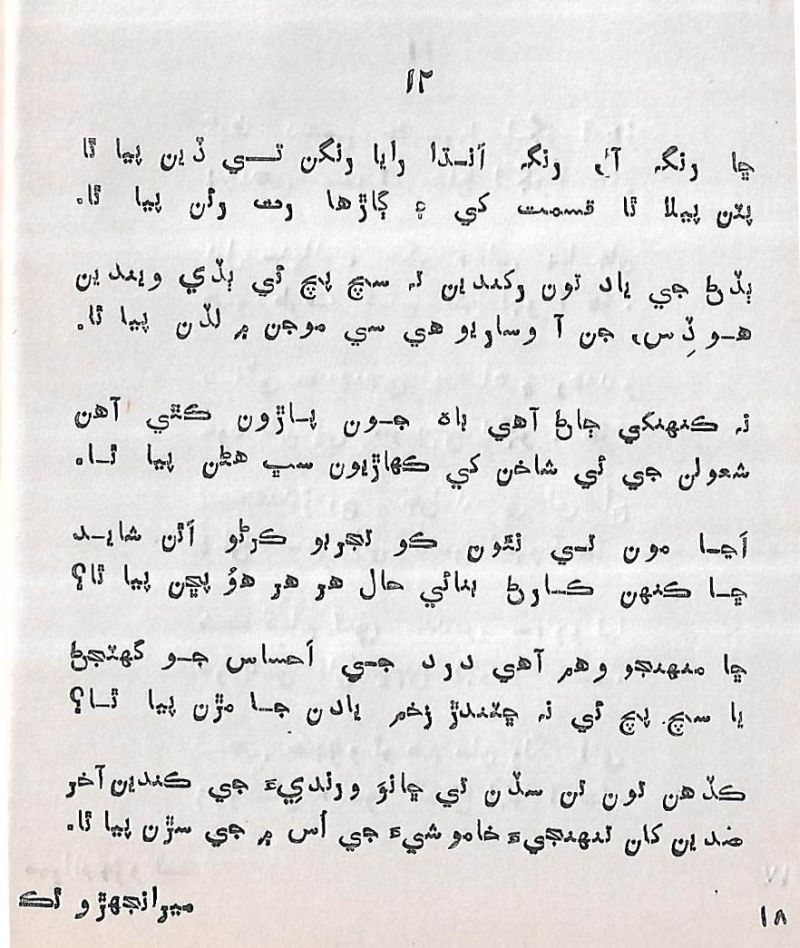 ۱۲
ڇا رنگ آهي رنگ انڌا رايا رنگن تي ڏين پيا ٿا
پٽن پيلا ٿا قسمت کي ۽ ڳاڙها رت رئن پيا ٿا.
ٻڏڻ جي ياد تون رکندين ته سچ پچ ئي ٻڏي ويندين
هو ڏِس، جن آ وساريو هي سي موجن ۾ لڏن پيا ٿا.
نه ڪنهنکي ڄاڻ آهي باهه جون پاڙون ڪٿي آهن
شعولن جي ئي شاخن کي ڪهاڙيون سڀ هڻن پيا ٿا.
اَڃا مون تي نئون ڪو تجربو ڪرڻو اَٿن شايد
ڇا ڪنهن ڪارڻ بنائي حال هر هر هوُ پڇن پيا ٿا؟
ڇا منهنجو وهم آهي درد جي اَحساس جو گهٽجڻ
يا سچ پچ ئي نه ڇٽندڙ زخم يادن جا مڙن پيا ٿا؟
ڪڏهن تون تن سڏن تي ڇانوَ ورنديءَ جي ڪندين آخر
صدين کان تنهنجيءَ خاموشيءَ جي اُس ۾ جي سڙن پيا ٿا.
ميرانجهڙو ٿڪ
۱۸